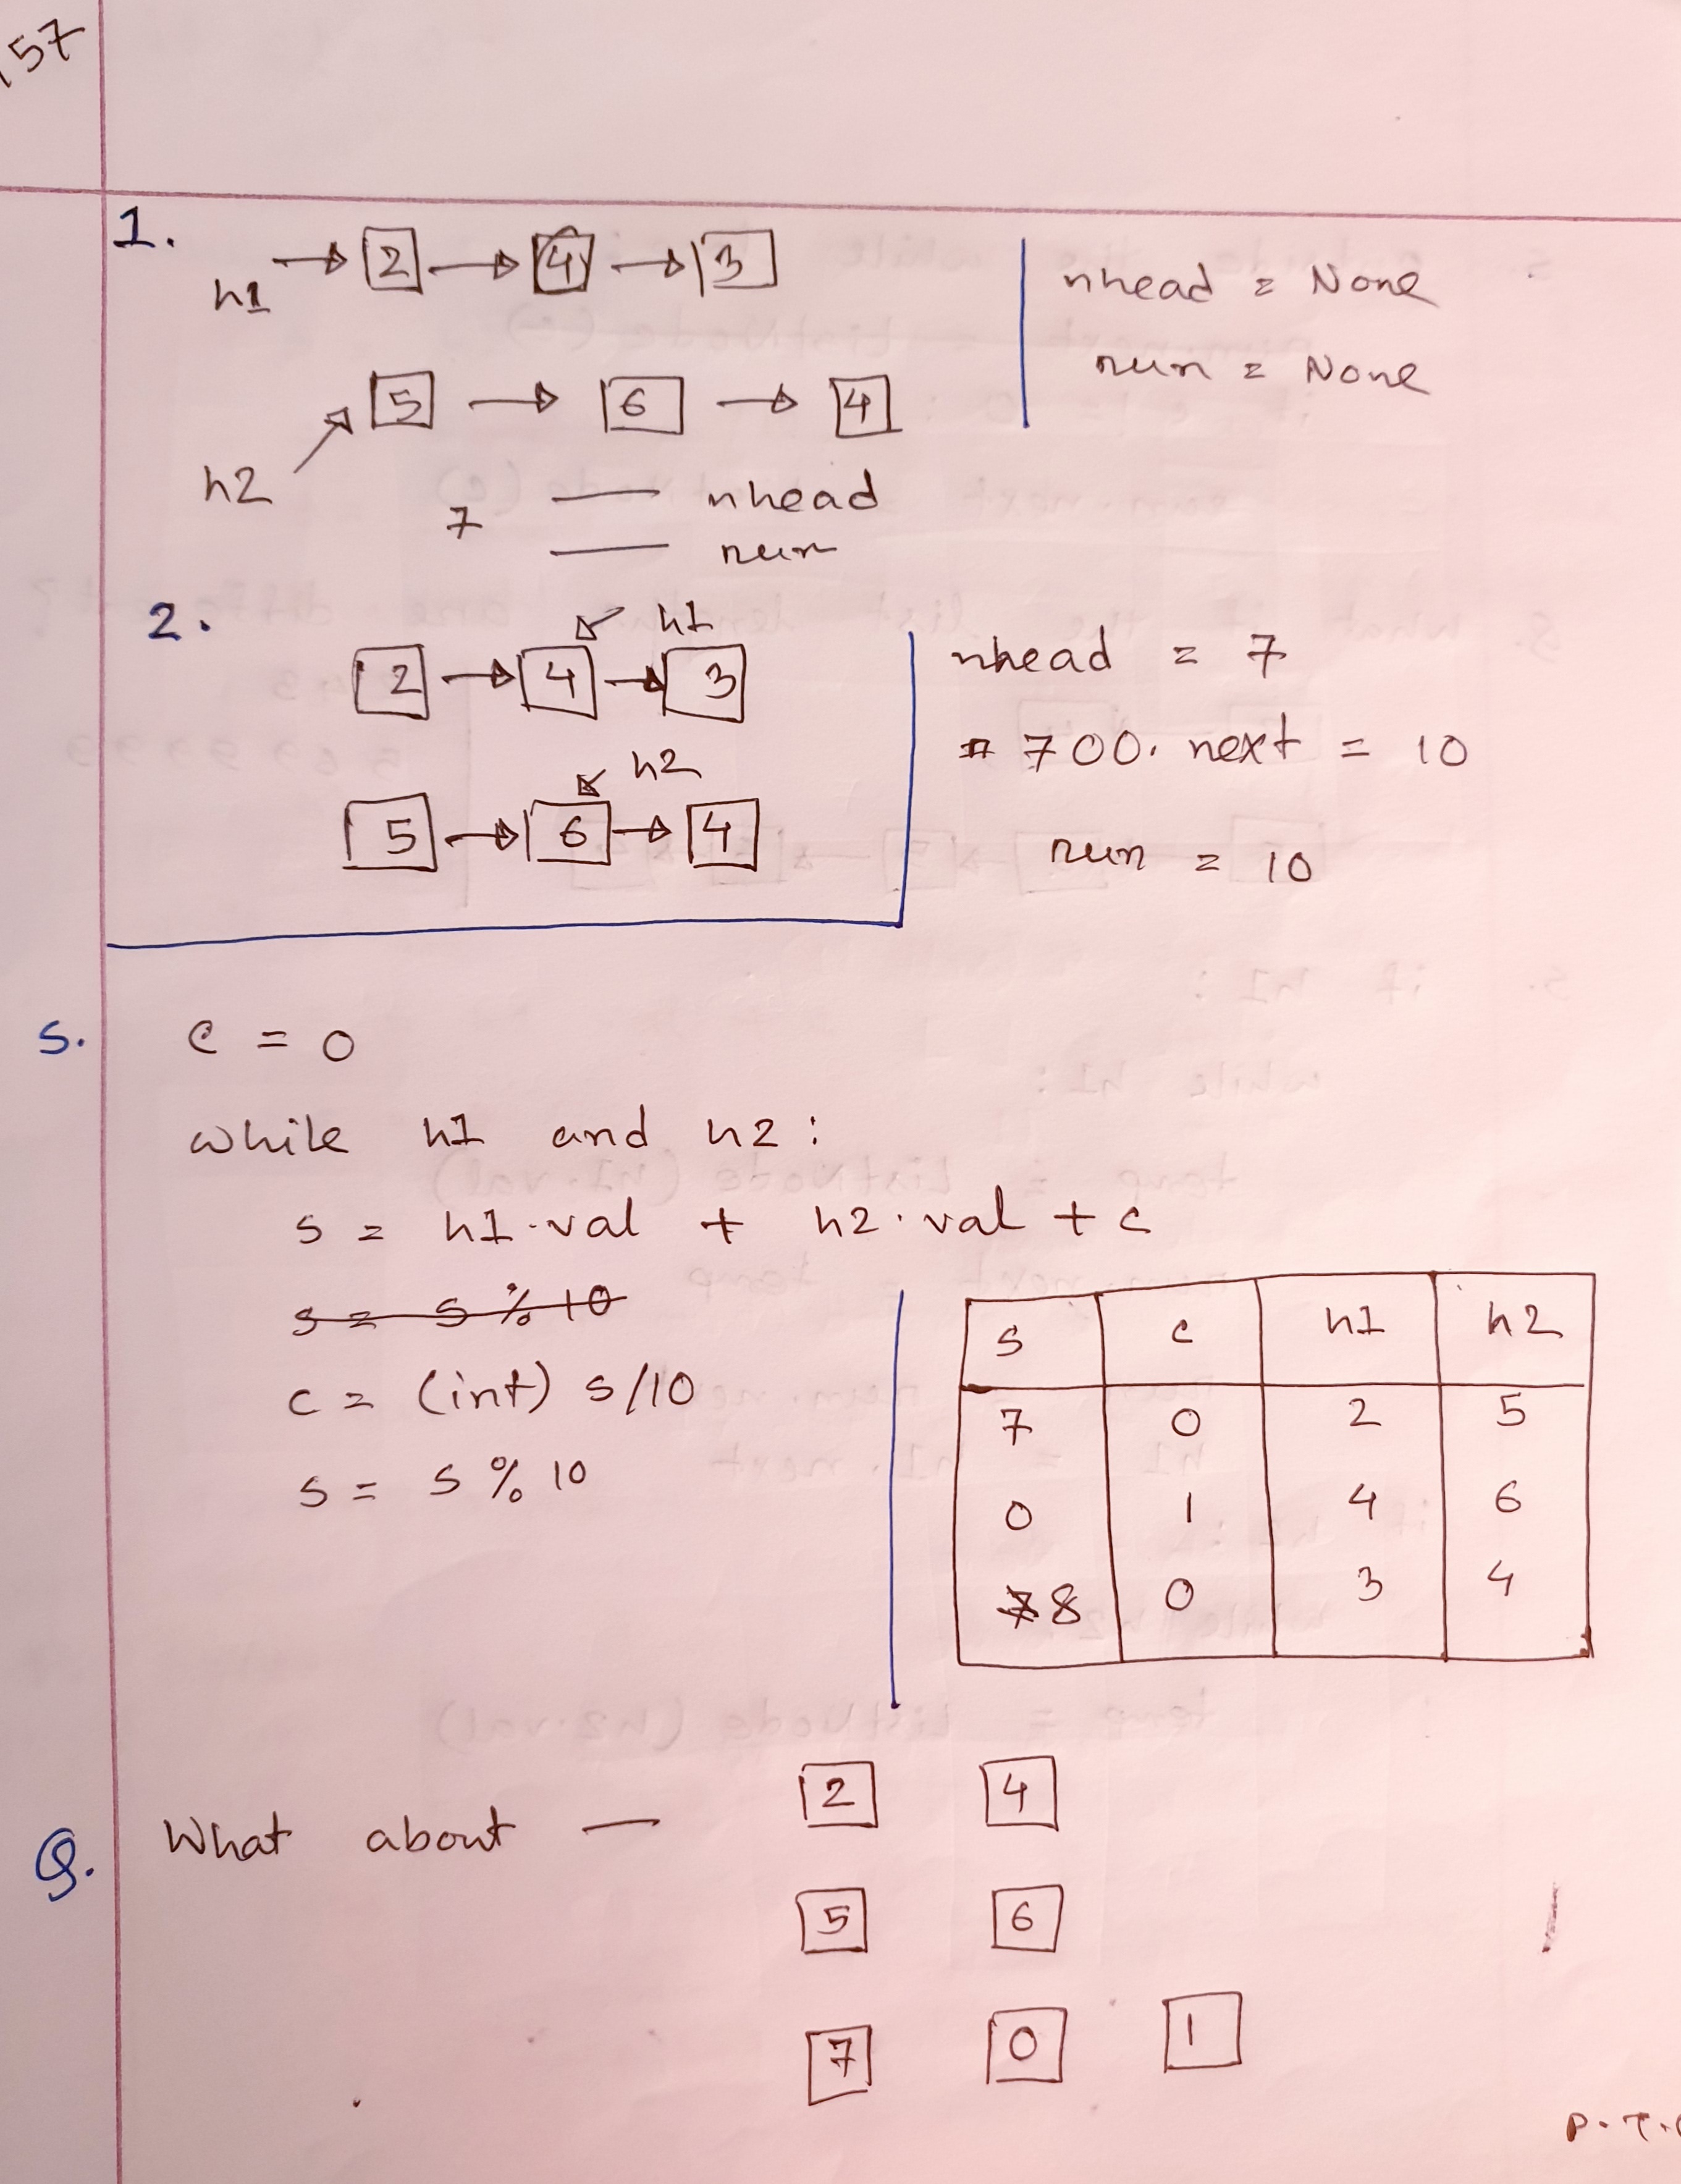 157
1.
h1 → 2 → 4 → 3
nhead = None
run = None
5 → 6 → 4
h2
7 — nhead
— run
2.
h1
2 → 4 → 3
h2
5 → 6 → 4
nhead = 7
700. next = 10
run = 10
S. c = 0
while h1 and h2:
s = h1.val + h2.val + c
s = s % 10
c = (int) s/10
s = s % 10
s c h1 h2
7 0 2 5
0 1 4 6
7 8 0 3 4
Q. What about — 2 4
5 6
7 0 1
P.T.